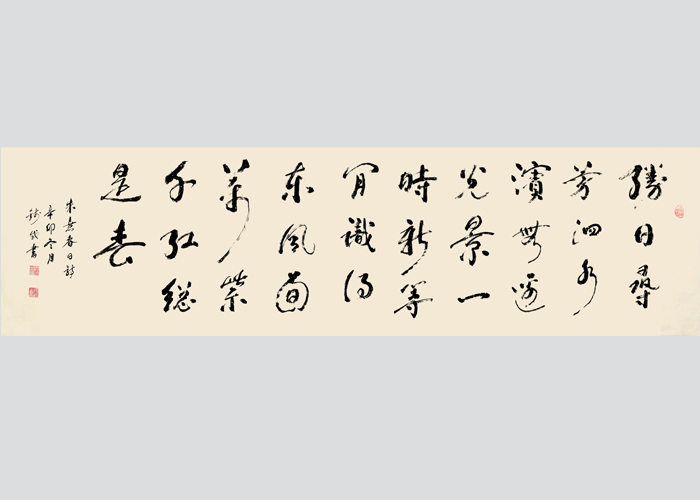 勝日尋
芳泗水
濱無邊
光景一
時新等
閒識得
東風面
萬紫
千紅總
是春
朱熹春日詩
辛卯冬月
書